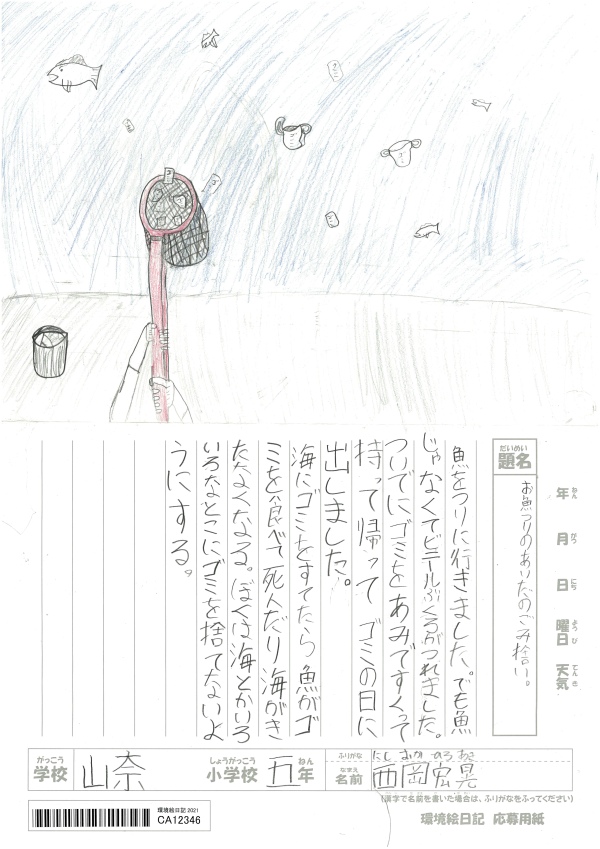 だいめい
題名
お魚つりのあいだのごみ捨い。
年 ねん
月 がつ
日 にち
曜日 ようび
天気 てんき
魚をつりに行きました。でも魚
じゃなくてビニールぶくろがつれました。
ついでにゴミをあみですくって
持って帰ってゴミの日に
出しました。
海にゴミをすてたら魚がゴ
ミを食べて死んだり海がき
たなくなる。ぼくは海とかいろ
いろなとこにゴミを捨てないよ
うにする。
がっこう
学校
山奈
しょうがっこう
小学校
五
ねん
年
ふりがな
にし おか のろ あき
なまえ
名前
西岡宏晃
(漢字で名前を書いた場合は、ふりがなをふってください)
環境絵日記 2021
CA12346
環境絵日記 応募用紙